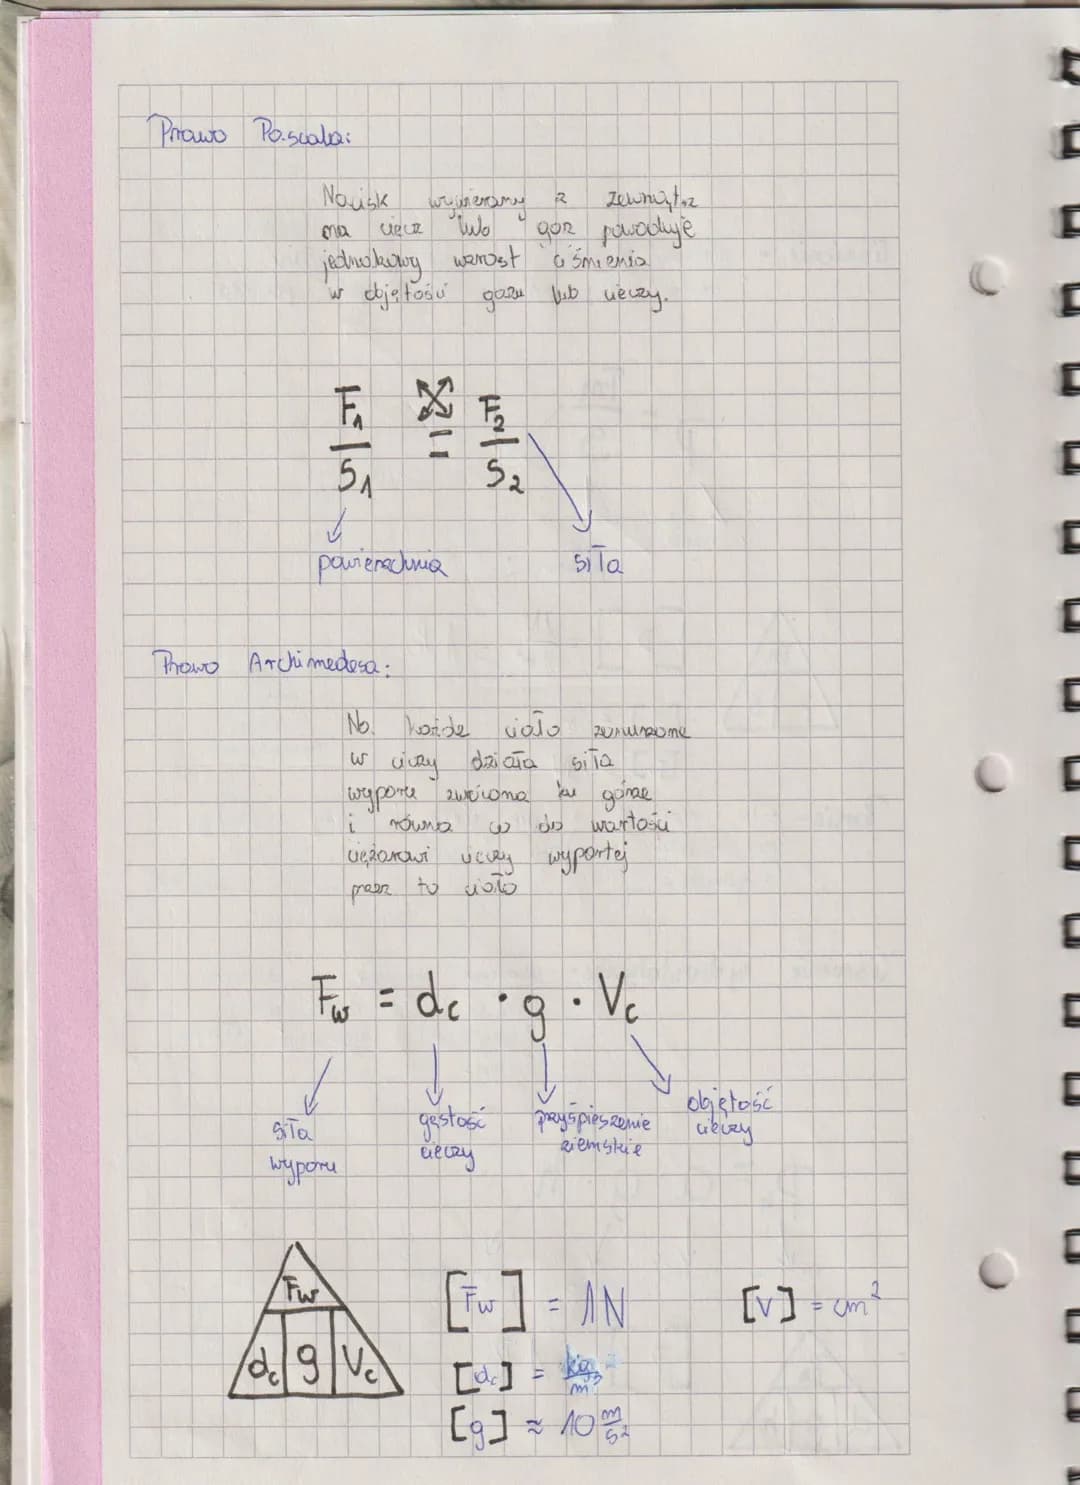 Prawo Pascala:
Nacisk wywierany z zewnątrz
na ciecz lub gaz powoduje
jednakowy wzrost ciśnienia
w objętości gazu lub cieczy.
F₁ = F₂
S₁ S₂
powierzchnia siła
Prawo Archimedesa:
Na każde ciało zanurzone
w cieczy działa siła
wyporu zwrócona ku górze
i równa co do wartości
ciężarowi cieczy wypartej
przez to ciało
Fw = dc · g · Vc
siła gęstość przyśpieszenie objętość
wyporu cieczy ziemskie cieczy
Fw
dc g Vc
[Fw] = 1N [V] = cm²
[dc] = kg/m³
[g] ≈ 10 m/s²